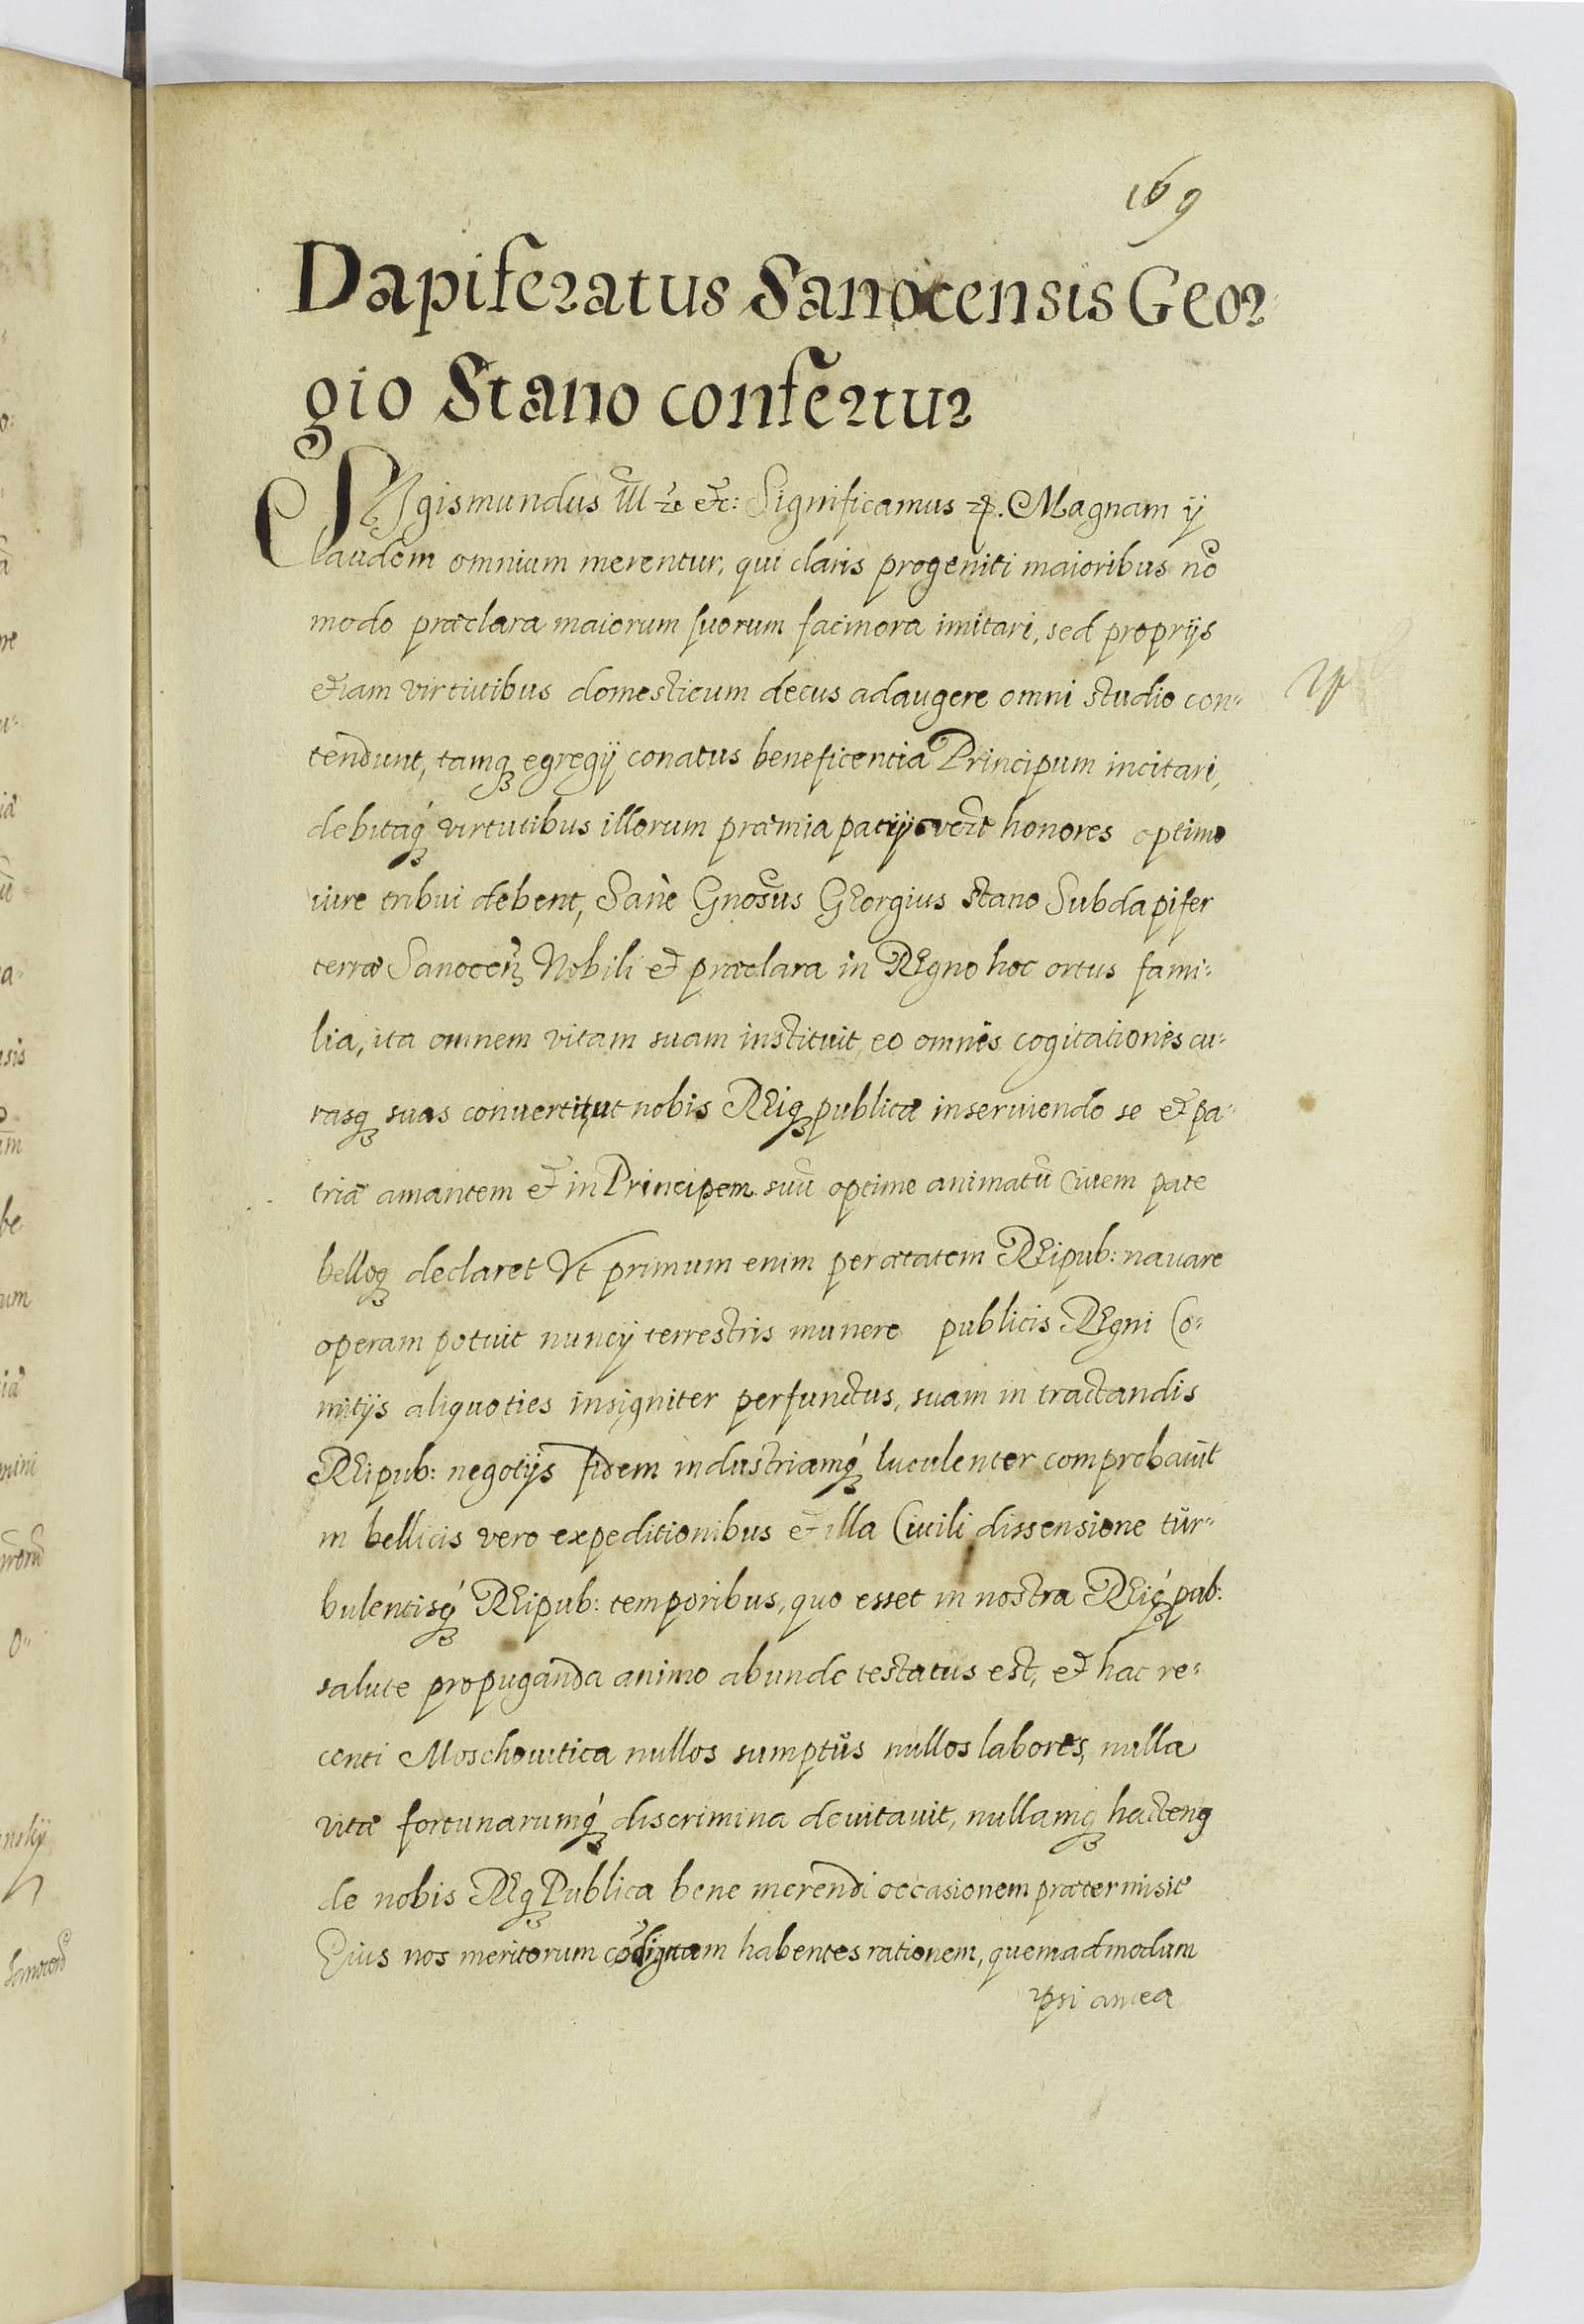 169
Dapiferatus Sanocensis Geor
gio Stano confertur
Sigismundus III etc etc: Significamus etc. Magnam ij
laudem omnium merentur, qui claris progeniti maioribus nō
modo præclara maiorum suorum facinora imitari, sed proprijs
etiam virtutibus domesticum decus adaugere omni studio con-
tendunt, tamq egregij conatus beneficentia Principum incitari,
debitaq virtutibus illorum præmia vero honores optimo
iure tribui debent, Sanè Gnosus Georgius Stano Subdapifer
terræ Sanocen Nobili et præclara in Regno hoc ortus fami-
lia, ita omnem vitam suam instituit, eo omnes cogitationes cu-
rasq suas convertit, ut nobis Reiq publicæ inserviendo se et pa-
triæ amantem et in Principem suū optime animatū Civem pace
belloq declaret Vt primum enim per ætatem Reipub: navare
operam potuit nuncij terrestris munere publicis Regni Co-
mitijs aliquoties insigniter perfunctus, suam in tractandis
Reipub: negotijs fidem industriamq luculenter comprobavit
in bellicis vero expeditionibus et illa Civili dissensione tur-
bulentisq Reipub: temporibus, quo esset in nostra Reiq pub:
salute propuganda animo abunde testatus est, et hac re-
centi Moschovitica nullos sumptus nullos labores, nulla
vitæ fortunarumq discrimina devitavit, nullamq hacteng
de nobis Req Publica bene merendi occasionem prætermisit
Eius nos meritorum cōdignam habentes rationem, quemadmodum
ipsi antea